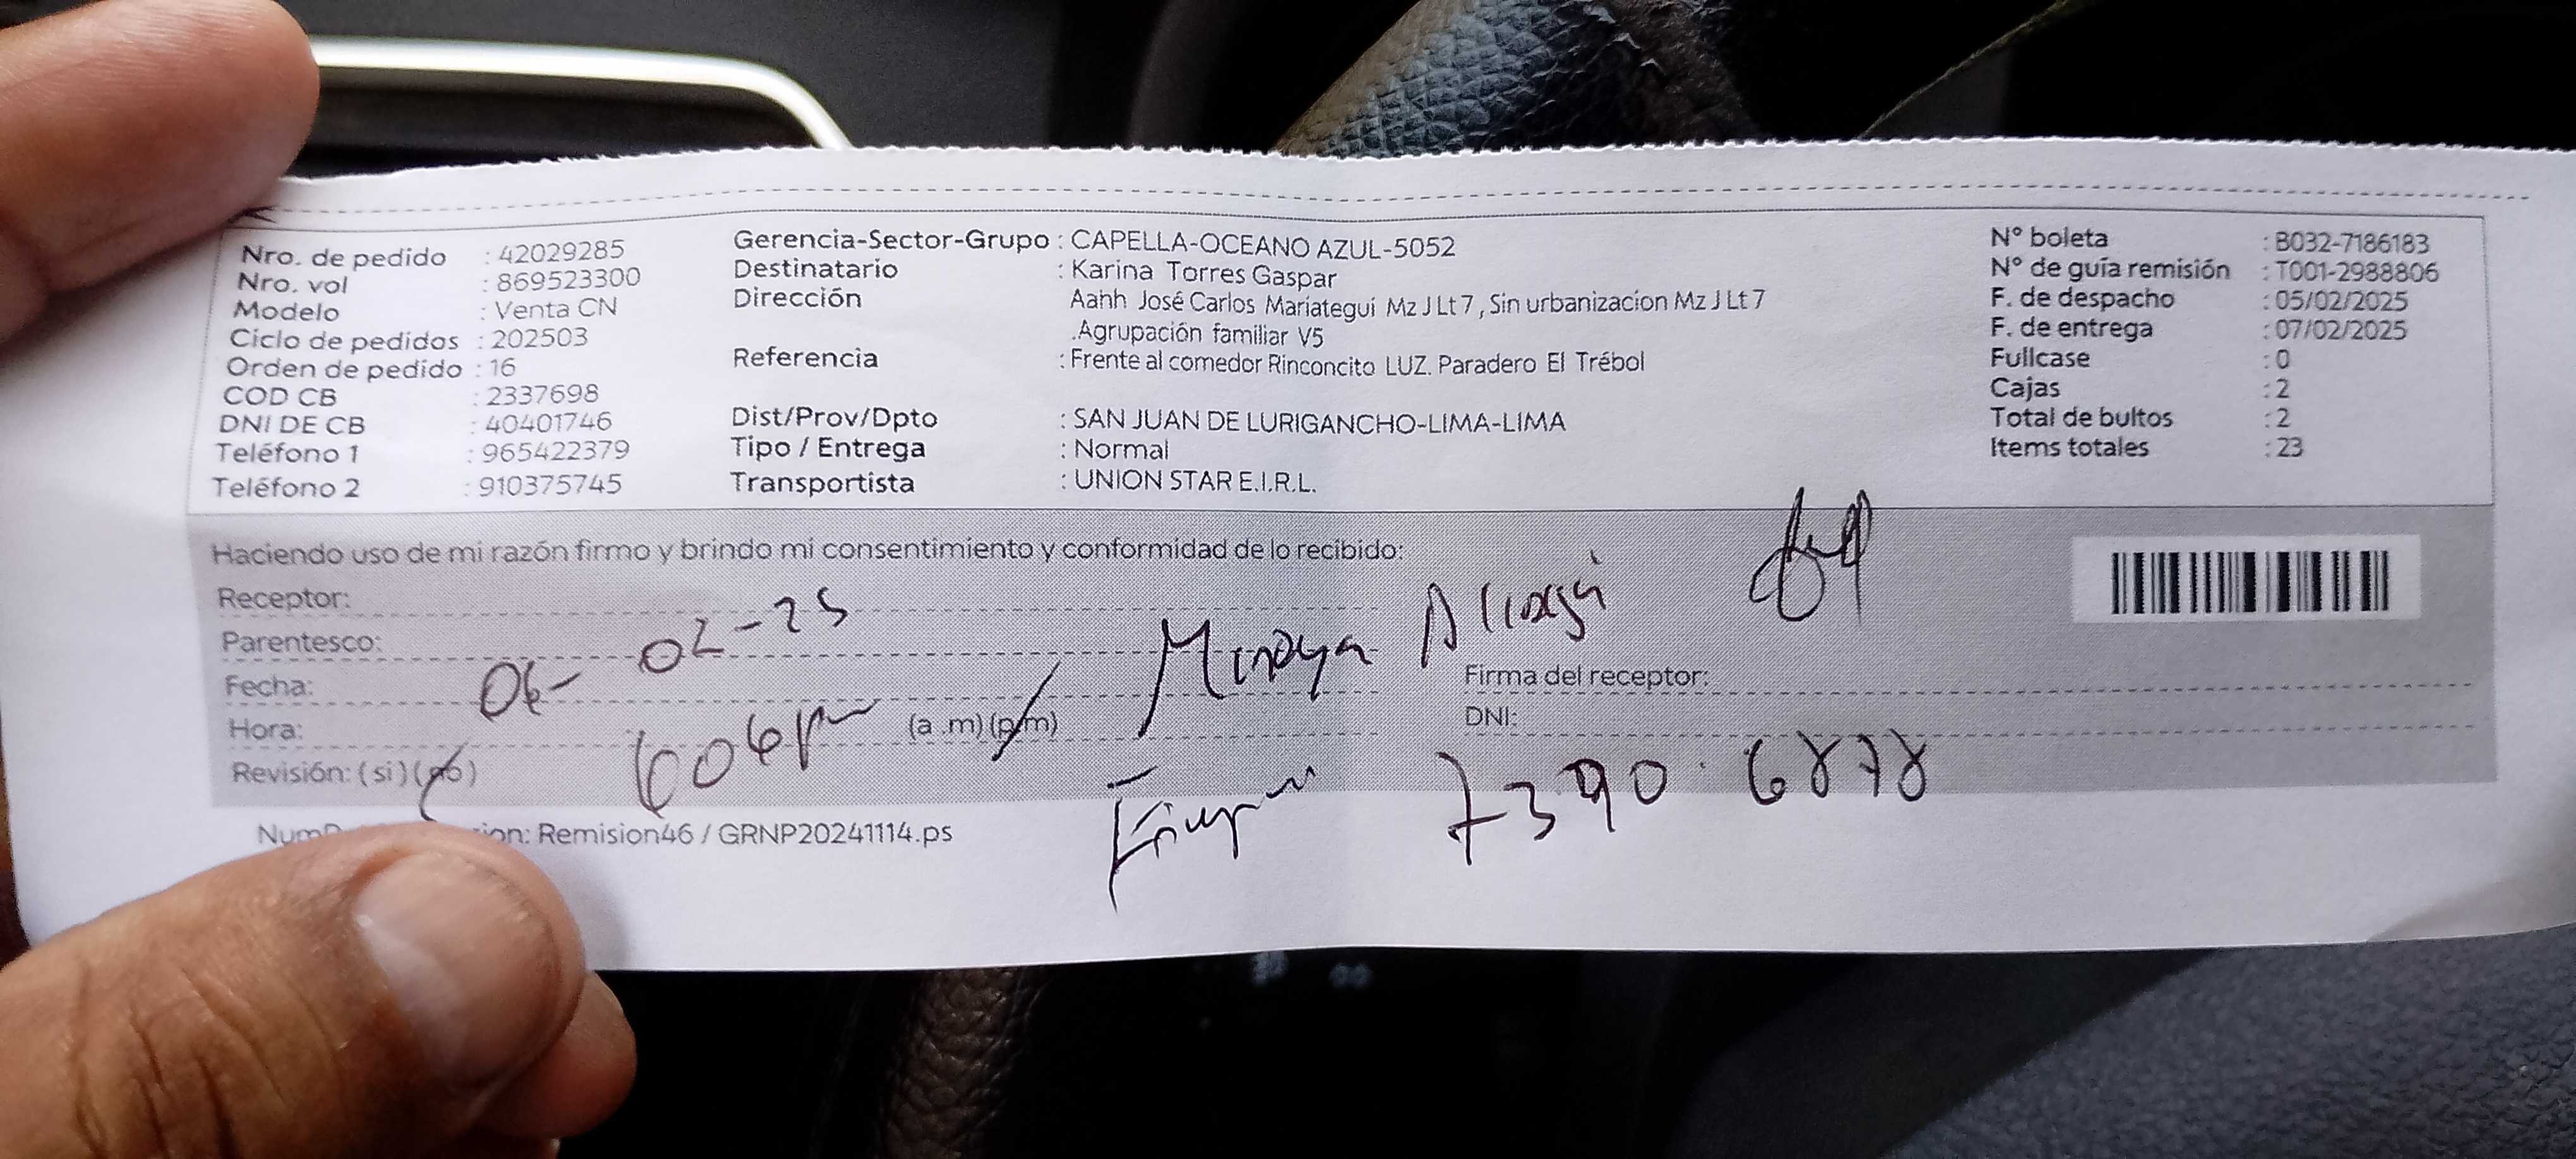 Nro. de pedido : 42029285
Nro. vol : 869523300
Modelo : Venta CN
Ciclo de pedidos : 202503
Orden de pedido : 16
COD CB : 2337698
DNI DE CB : 40401746
Teléfono 1 : 965422379
Teléfono 2 : 910375745
Gerencia-Sector-Grupo : CAPELLA-OCEANO AZUL-5052
Destinatario : Karina Torres Gaspar
Dirección Aahh José Carlos Mariategui Mz J Lt 7 , Sin urbanizacion Mz J Lt 7
.Agrupación familiar V5
Referencia : Frente al comedor Rinconcito LUZ. Paradero El Trébol
Dist/Prov/Dpto : SAN JUAN DE LURIGANCHO-LIMA-LIMA
Tipo / Entrega : Normal
Transportista : UNION STAR E.I.R.L.
N° boleta : B032-7186183
N° de guía remisión : T001-2988806
F. de despacho : 05/02/2025
F. de entrega : 07/02/2025
Fullcase : 0
Cajas : 2
Total de bultos : 2
Items totales : 23
Haciendo uso de mi razón firmo y brindo mi consentimiento y conformidad de lo recibido:
Receptor:
Parentesco:
Fecha: 06- 02-25
Hora: 606pm (a .m) (p.m)
Revisión: (si) (no)
Firma del receptor:
DNI:
7390 6878
ion: Remision46 / GRNP20241114.ps